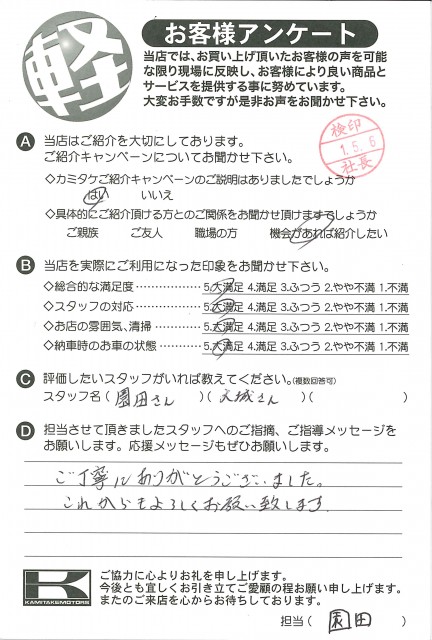 軽
お客様アンケート
当店では、お買い上げ頂いたお客様の声を可能
な限り現場に反映し、お客様により良い商品と
サービスを提供する事に努めています。
大変お手数ですが是非お声をお聞かせ下さい。
検印
1.5.6
社長
A 当店はご紹介を大切にしております。
ご紹介キャンペーンについてお聞かせ下さい。
◇カミタケご紹介キャンペーンのご説明はありましたでしょうか
はい いいえ
◇具体的にご紹介頂ける方とのご関係をお聞かせ頂けますでしょうか
ご親族 ご友人 職場の方 機会があれば紹介したい
B 当店を実際にご利用になった印象をお聞かせ下さい。
◇総合的な満足度・・・・・・・・・・・・ 5.大満足 4.満足 3.ふつう 2.やや不満 1.不満
◇スタッフの対応・・・・・・・・・・・・ 5.大満足 4.満足 3.ふつう 2.やや不満 1.不満
◇お店の雰囲気、清掃・・・・・・・・ 5.大満足 4.満足 3.ふつう 2.やや不満 1.不満
◇納車時のお車の状態・・・・・・・・ 5.大満足 4.満足 3.ふつう 2.やや不満 1.不満
C 評価したいスタッフがいれば教えてください。(複数回答可)
スタッフ名(園田さん)(大城さん)( )
D 担当させて頂きましたスタッフへのご指摘、ご指導メッセージを
お願いします。応援メッセージもぜひお願いします。
ご丁寧にありがとうございました。
これからもよろしくお願い致します。
KAMITAKEMOTORS
ご協力に心よりお礼を申し上げます。
今後とも宜しくお引き立てご愛顧の程お願い申し上げます。
またのご来店を心からお待ちしております。
担当( 園田 )